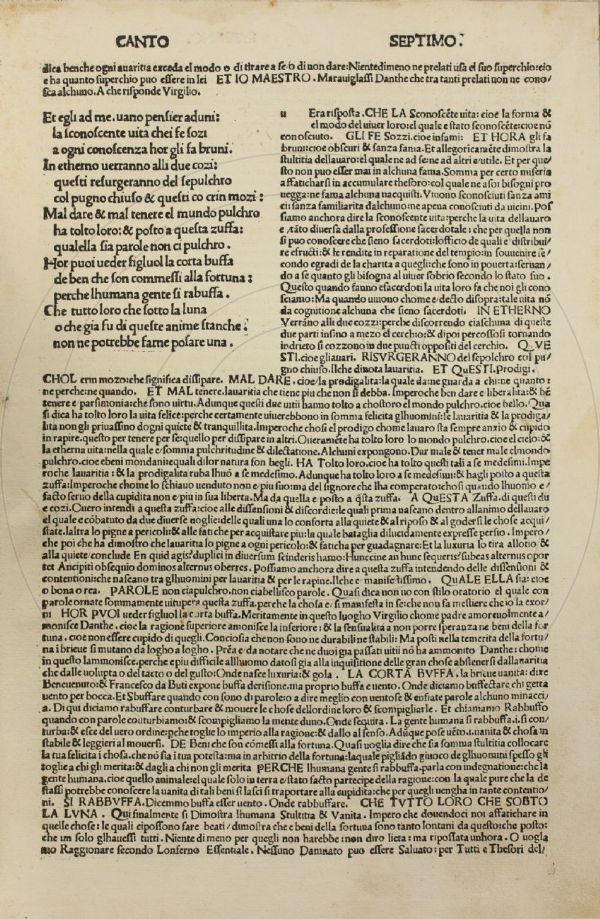 CANTO SEPTIMO.
dica benche ogni auaritia exceda el modo o di tirare a se o di non dare: Nientedimeno ne prelati usa el suo superchio: cio
e ha quanto superchio puo essere in lei ET IO MAESTRO. Marauiglassi Danthe che tra tanti prelati non ne cono/
sca alchuno. A che risponde Virgilio.
Et egli ad me. uano pensier aduni:
la sconoscente uita chei fe sozi
a ogni conoscenza hor gli fa bruni.
In etherno uerranno alli due cozi:
questi resurgeranno del sepulchro
col pugno chiuso & questi co crin mozi:
Mal dare & mal tenere el mondo pulchro
ha tolto loro: & posto a questa zuffa:
qualella sia parole non ci pulchro.
Hor puoi ueder figluol la corta buffa
de ben che son commessi alla fortuna:
perche lhumana gente si rabuffa.
Che tutto loro che sotto la luna
o che gia fu di queste anime stanche
non ne potrebbe farne posare una.
u Era risposta. CHE LA Sconoscēte uita: cioe la forma &
el modo del uiuer loro: el quale e stato sconoscēte: cioe nō
conosciuto. GLI FE Sozzi. cioe infami: ET HORA gli fa
bruni: cioe obscuri & sanza fama. Et allegoricamēte dimostra la
stultitia dellauaro: el quale ne ad se ne ad altri e utile. Et per que/
sto non puo esser mai in alchuna fama. Somma per certo miseria
affaticharsi in accumulare thesoro: col quale ne a soi bisogni pro
uegga: ne fama alchuna nacquisti. Viuono sconosciuti sanza ami
ci: sanza familiarita dalchuno: ne apena conosciuti da uicini. Pos
siamo anchora dire la sconoscente uita: perche la uita dellauaro
e stato diuersa dalla professione sacerdotale: che per quella non
si puo conoscere che sieno sacerdoti: lofficio de quali e distribui/
re efructi: & le rendite in reparatione del tempio: in souuenire se/
condo egradi de la charita a quegli: che sono in pouerta: seruan/
do a se quanto gli bisogna al uiuer sobrio secondo lo stato suo.
Questo quando fanno esacerdoti la uita loro fa che noi gli cono
sciamo: Ma quando uiuono chome e decto disopra: tale uita nō
da cognitione alchuna che sieno sacerdoti. IN ETHERNO
Verrāno alli due cozzi: perche discorrendo ciaschuna di queste
due parti insino a mezo el cerchio: & dipoi percossosi tornando
indrieto si cozzono in due puncti oppositi del cerchio. QVE
STI. cioe gliauari. RISVRGERANNO del sepolchro col pu/
gno chiuso. Ilche dinota lauaritia. ET QVESTI. Prodigi.
CHOL crin mozo: che significa dissipare. MAL DARE. cioe / la prodigalita: la quale da: ne guarda a chi: ne quanto:
ne perche: ne quando. ET MAL tenere. lauaritia che tiene piu che non si debba. Imperoche ben dare e liberalita: & bē
tenere e parsimonia: che sono uirtu. Adunque questi due uitii hanno tolto a chostoro el mondo pulchro. cioe bello. Qua
si dica ha tolto loro la uita felice: perche certamente uiuerebbono in somma felicita glhuomini: se lauaritia & la prodiga/
lita non gli priuassino dogni quiete & tranquillita. Imperoche chosi el prodigo chome lauaro sta sempre anxio & cupido
in rapire. questo per tenere per se: quello per dissipare in altri. Oueramēte ha tolto loro lo mondo pulchro. cioe el cielo: &
la etherna uita: nella quale e somma pulchritudine & dilectatione. Alchuni expongono. Dar male & tener male el mondo
pulchro. cioe ebeni mondani: equali di lor natura son begli. HA Tolto loro. cioe ha tolto questi tali a se medesimi. Impe
roche lauaritia: & la prodigalita ruba lhuō a se medesimo. Adunque ha tolto loro a se medesimi: & hagli posto a questa
zuffa: Imperoche chome lo schiauo uenduto non e piu suo ma del signore che lha comperato: chosi quando lhuomo e/
facto seruo della cupidita non e piu in sua liberta. Ma da quella e posto a q̄sta zuffa. A QVESTA Zuffa. di questi du
e cozi. Ouero intendi a questa zuffa: cioe alle dissensioni & discordie: le quali prima nascano dentro allanimo dellauaro
el quale e cōbatuto da due diuerse uoglie: delle quali una lo conforta alla quiete & al riposo & al godersi le chose acqui/
state. laltra lo pigne a pericoli: & alle fatiche per acquistare piu: la quale bataglia dilucidamente expresse persio. Impero/
che poi che ha dimostro che lauaritia lo pigne a ogni pericolo: & faticha per guadagnare: Et la luxuria lo tira allotio &
alla quiete / conclude En quid agis: duplici in diuersum scinderis hamo: Huncine an hunc sequeris: subeas alternus opor
tet Ancipiti obsequio dominos alternus oberres. Possiamo anchora dire a questa zuffa intendendo delle dissensioni &
contentioni: che nascano tra glhuomini per lauaritia & per le rapine. Ilche e manifestissimo. QVALE ELLA sia: cioe
o bona o rea. PAROLE non ciapulchro. non ciabellisco parole. Quasi dica non uo con stilo oratorio el quale con
parole ornate sommamente uitupera questa zuffa. perche la chosa e si manifesta in se: che non fa mestiere che io la exor/
ni HOR PVOI ueder figluol la curta buffa. Meritamente in questo luogho Virgilio chome padre amoreuolmente a/
monisce Danthe. cioe la ragione superiore amonisce la inferiore: & la sensualita a non porre speranza ne beni della for
tuna. cioe non essere cupido di quegli. Conciosia che non sono ne durabili ne stabili: Ma posti nella temerita della fortu/
na i brieue si mutano da logho a logho. Prēa e da notare che ne duoi gia passati uitii nō ha ammonito Danthe: chome
in questo lammonisce. perche e piu difficile allhuomo datosi gia alla inquisitione delle gran chose abstenersi dallauaritia
che dalle uolupta o del tacto o del gusto: Onde nasce luxuria: & gola. LA CORTA BVFFA. la brieue uanita: dire
Benuenuto: & Francesco da Buti expone buffa derisione. ma proprio buffa e uento. Onde diciamo buffectare chi getta
uento per bocca. Et Sbuffare quando con sono di parole: o a dire meglio con uentose & enfiate parole alchuno minacci/
a. Di qui diciamo rabuffare conturbare & mouere le chose dellordine loro & scompigliarle. Et chiamamo Rabbuffo
quando con parole couturbiamo: & scompigliamo la mente duno. Onde sequita. La gente humana si rabbuffa. i. si con/
turba: & esce del uero ordine: perche toglie lo imperio alla ragione: & dallo al senso. Adūque pose uēto. i. uanita & chosa in
stabile & leggieri al mouersi. DE Beni che son cōmessi alla fortuna. Quasi uoglia dire che sia somma stultitia collocare
la tua felicita i chosa. che nō sia i tua potesta: ma in arbitrio della fortuna: laquale pigliādo giuoco de glhuomini spesso gli
toglie a chi gli merita: & dagli a chi non gli merita PERCHE lhumana gente si rabbuffa. parla con indegnatione: che la
gente humana. cioe quello animale: el quale solo in terra e stato facto partecipe della ragione: con la quale pure che la de
stassi potrebbe conoscere la uanita di tali beni si lasci si traportare alla cupidita: che per quegli uengha in tante contentio/
ni. SI RABBVFFA. Dicemmo buffa esser uento. Onde rabbuffare. CHE TVTTO LORO CHE SOBTO
LA LVNA. Qui finalmente si Dimostra lhumana Stultita & Vanita. Impero che douendoci noi affatichare in
quelle chose: le quali cipossono fare beati / dimostra che e beni della fortuna sono tanto lontani da questo: che posto:
che un solo glhauessi tutti. Niente di meno per quegli non harebbe: non diro lieta: ma ripossata unhora. O uogla
mo Raggionare secondo Lonferno Essentiale. Nessuno Damnato puo essere Saluato: per Tutti e Thesori del/